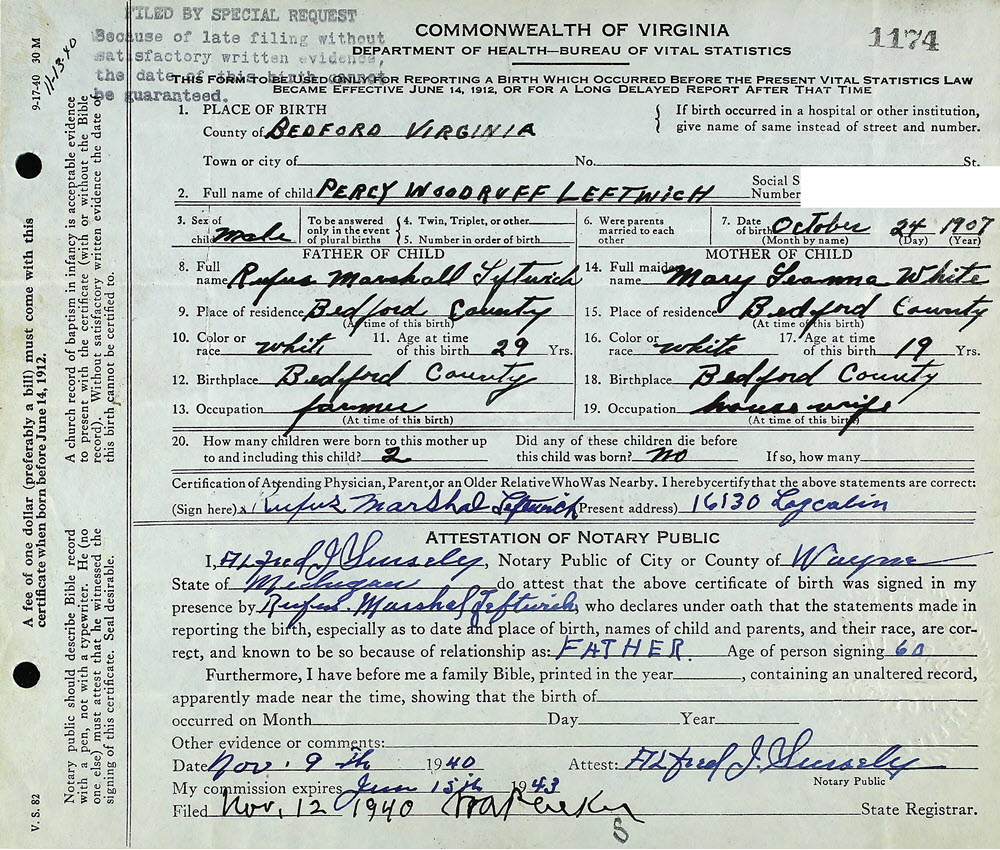 FILED BY SPECIAL REQUEST
Because of late filing without
satisfactory written evidence,
the date of this birth cannot
be guaranteed.
9-17-40 30 M
11-13-40
COMMONWEALTH OF VIRGINIA
DEPARTMENT OF HEALTH—BUREAU OF VITAL STATISTICS
1174
THIS FORM TO BE USED ONLY FOR REPORTING A BIRTH WHICH OCCURRED BEFORE THE PRESENT VITAL STATISTICS LAW
BECAME EFFECTIVE JUNE 14, 1912, OR FOR A LONG DELAYED REPORT AFTER THAT TIME
1. PLACE OF BIRTH
County of BEDFORD VIRGINIA
{ If birth occurred in a hospital or other institution,
give name of same instead of street and number.
Town or city of No. St.
2. Full name of child PERCY WOODRUFF LEFTWICH Social S
Number
3. Sex of child male
To be answered only in the event of plural births
{ 4. Twin, Triplet, or other
5. Number in order of birth
6. Were parents married to each other
7. Date of birth October 24 1907
(Month by name) (Day) (Year)
FATHER OF CHILD
8. Full name Rufus Marshall Leftwich
9. Place of residence Bedford County
(At time of this birth)
10. Color or race white 11. Age at time of this birth 29 Yrs.
12. Birthplace Bedford County
13. Occupation farmer
(At time of this birth)
MOTHER OF CHILD
14. Full maiden name Mary Leanna White
15. Place of residence Bedford County
(At time of this birth)
16. Color or race white 17. Age at time of this birth 19 Yrs.
18. Birthplace Bedford County
19. Occupation housewife
(At time of this birth)
20. How many children were born to this mother up
to and including this child? 2
Did any of these children die before
this child was born? no If so, how many
Certification of Attending Physician, Parent, or an Older Relative Who Was Nearby. I hereby certify that the above statements are correct:
(Sign here) x Rufus Marshal Leftwich (Present address) 16130 Logcabin
ATTESTATION OF NOTARY PUBLIC
I, Alfred J. , Notary Public of City or County of Wayne
State of Michigan do attest that the above certificate of birth was signed in my
presence by Rufus Marshel Leftwich, who declares under oath that the statements made in
reporting the birth, especially as to date and place of birth, names of child and parents, and their race, are cor-
rect, and known to be so because of relationship as: FATHER. Age of person signing 60
Furthermore, I have before me a family Bible, printed in the year , containing an unaltered record,
apparently made near the time, showing that the birth of
occurred on Month Day Year
Other evidence or comments:
Date Nov. 9 th 1940 Attest: Alfred J.
Notary Public
My commission expires 15th 1943
Filed Nov. 12 1940 State Registrar.
A fee of one dollar (preferably a bill) must come with this
certificate when born before June 14, 1912.
A church record of baptism in infancy is acceptable evidence
to present with the certificate (with or without the Bible
record). Without satisfactory written evidence the date of
this birth cannot be certified to.
Notary public should describe Bible record
with a pen, not with a typewriter. He (no
one else) must attest that he witnessed the
signing of this certificate. Seal desirable.
V. S. 82